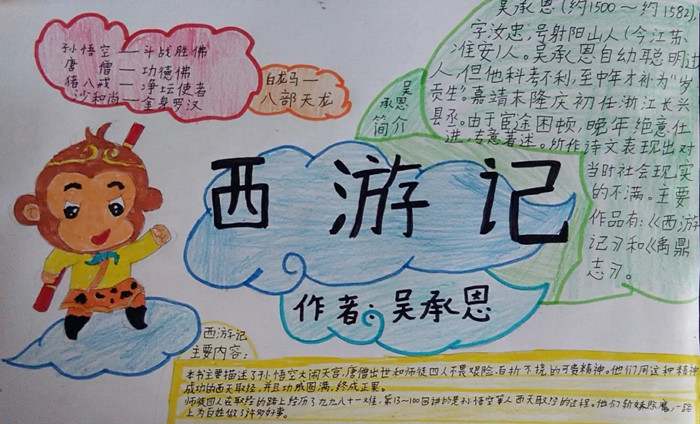 孙悟空——斗战胜佛
唐 僧——功德佛
猪八戒——净坛使者
沙和尚——金身罗汉
白龙马——
八部天龙
吴
承恩
简介
吴承恩(约1500～约1582)
字汝忠,号射阳山人(今江苏
淮安)人。吴承恩自幼聪明过
人,但他科考不利,至中年才补为"岁
贡生"。嘉靖末隆庆初任浙江长兴
县丞。由于宦途困顿,晚年绝意仕
进,专意著述。所作诗文表现出对
当时社会现实
的不满。主要
作品有:《西游
记》和《禹鼎
志》。
西游记
作者:吴承恩
西游记
主要内容:
本书主要描述了孙悟空大闹天宫,唐僧出世和师徒四人不畏艰险,百折不挠的可贵精神。他们用这种精神
成功的西天取经,并且功成圆满,终成正果。
师徒四人在取经的路上经历了九九八十一难,第13—100回讲的是孙悟空等人西天取经的过程。他们斩妖除魔,一路
上为百姓做了许多好事。